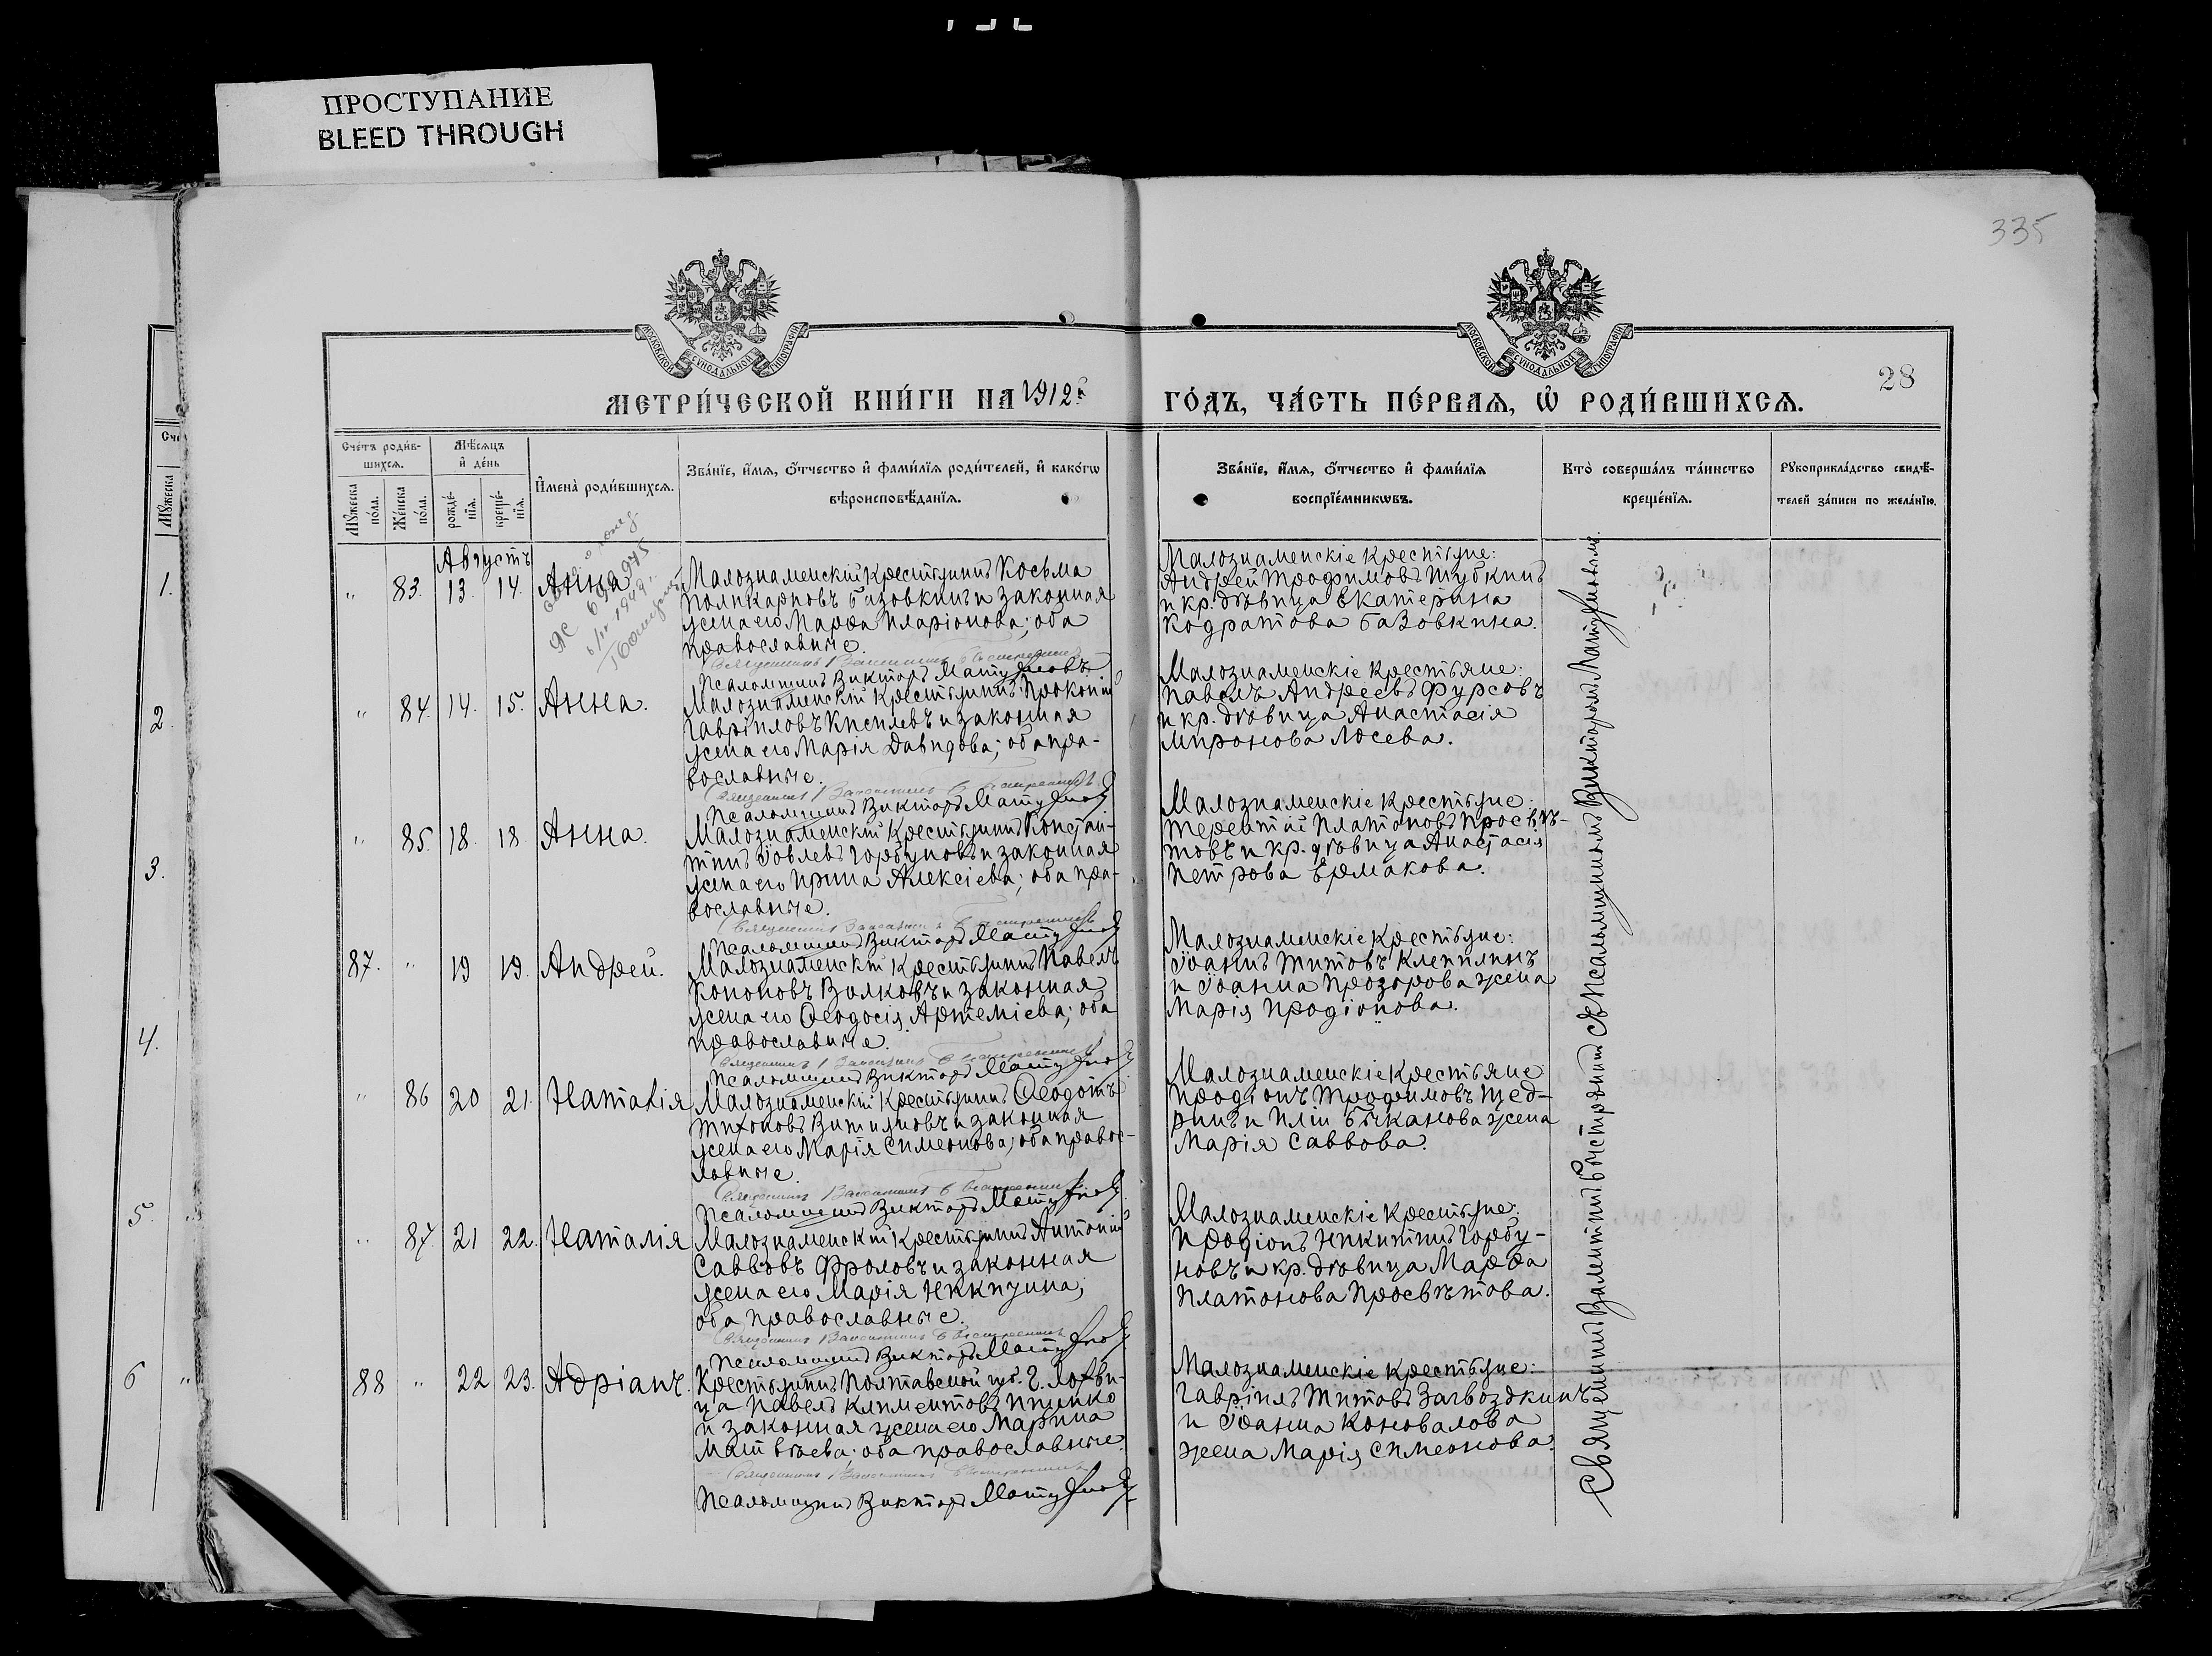 ПРОСТУПАНИЕ
BLEED THROUGH
335
28
МОСКОВСКОЙ СѴНОДАЛЬНОЙ ТИПОГРАФІИ
МОСКОВСКОЙ СѴНОДАЛЬНОЙ ТИПОГРАФІИ
МЕТРИ́ЧЕСКОЙ КНИ́ГИ НА 1912 й ГО́ДЪ, ЧА́СТЬ ПЕ́РВАЯ, Ѡ҆ РОДИ́ВШИХСЯ.
Сче́тъ роди́в-
шихся.
Мꙋ́жеска
по́ла.
Же́нска
по́ла.
Мѣ́сяцъ
и҆ де́нь
рожде́-
нїя.
креще́-
нїя.
И҆мена̀ роди́вшихся.
Зва́нїе, и҆́мя, ѻ҆́тчество и҆ фами́лїя роди́телей, и҆ како́гѡ
вѣроисповѣ́данїя.
Зва́нїе, и҆́мя, ѻ҆́тчество и҆ фами́лїя
воспрїе́мникѡвъ.
Кто̀ соверша́лъ та́инство
креще́нїя.
Рꙋкоприкла́дство свидѣ́-
телей за́писи по жела́нїю.
Августъ
" 83. 13. 14. Анна
Малознаменскій крестьянинъ Косьма
Поликарповъ Базовкинъ и законная
жена его Марѳа Иларіонова; оба
православные.
Псаломщикъ Викторъ Матуяновъ
Малознаменскіе крестьяне:
Андрей Трофимовъ Тубкинъ
и кр. дѣвица Екатерина
Кодратова Базовкина.
" 84. 14. 15. Анна.
Малознаменскій крестьянинъ Прокопій
Гавріиловъ Киселевъ и законная
жена его Марія Давидова; оба пра-
вославные.
Псаломщикъ Викторъ
Малознаменскіе крестьяне:
Павелъ Андреевъ Фурсовъ
и кр. дѣвица Анастасія
Миронова Лосева.
" 85. 18. 18. Анна.
Малознаменскій крестьянинъ Констан-
тинъ Іовлевъ Горбуновъ и законная
жена его Ирина Алексіева; оба пра-
вославные.
Псаломщикъ Викторъ
Малознаменскіе крестьяне:
Терентій Платоновъ Просвѣ-
товъ и кр. дѣвица Анастасія
Петрова Ермакова.
87. " 19 19. Андрей.
Малознаменскій крестьянинъ Павелъ
Кононовъ Волковъ и законная
жена его Ѳеодосія Артеміева; оба
православные.
Псаломщикъ Викторъ
Малознаменскіе крестьяне:
Іоаннъ Титовъ Клепилинъ
и Іоанна Прозорова жена
Марія Иродіонова.
" 86 20 21. Наталія
Малознаменскій крестьянинъ Ѳеодотъ
Тихоновъ и законная
жена его Марія Симеонова; оба правос-
лавные.
Псаломщикъ Викторъ
Малознаменскіе крестьяне
Иродіонъ Трофимовъ Щед-
ринъ и Иліи Быканова жена
Марія Саввова.
" 87. 21 22. Наталія
Малознаменскій крестьянинъ Антоній
Саввовъ Фроловъ и законная
жена его Марія Никитина;
оба православные.
Псаломщикъ Викторъ
Малознаменскіе крестьяне:
Иродіонъ Никитинъ Горбу-
новъ и кр. дѣвица Марѳа
Платонова Просвѣтова.
88 " 22 23. Адріанъ.
Крестьянинъ Полтавской губ. г. Лохви-
ца Павелъ Климентовъ Ищенко
и законная жена его Марина
Матвѣева; оба православные.
Псаломщикъ Викторъ
Малознаменскіе крестьяне:
Гавріилъ Титовъ Загвоздкинъ
и Іоанна Коновалова
жена Марія Симеонова.
Священникъ Валентинъ Быстровъ съ псаломщикомъ Викторомъ
1.
2.
3.
4.
5.
6